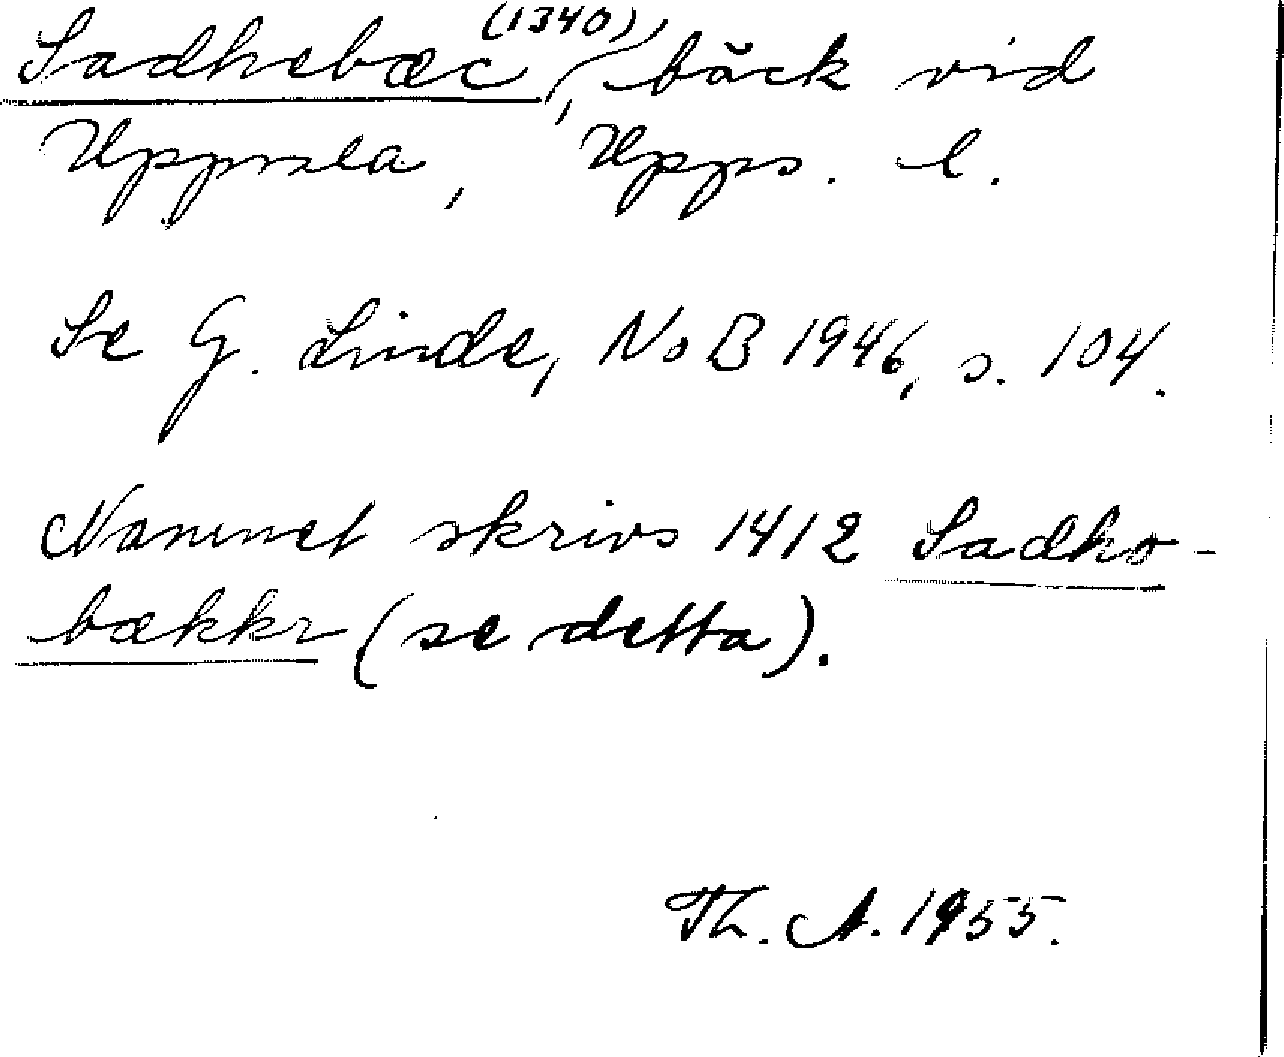 Sadhebæc (1340), bäck vid
Uppsala, Upps. l.
Se G. Linde, NoB 1946, s. 104.
Namnet skrivs 1412 Sadho-
bækkr (se detta).
Th. A. 1955.